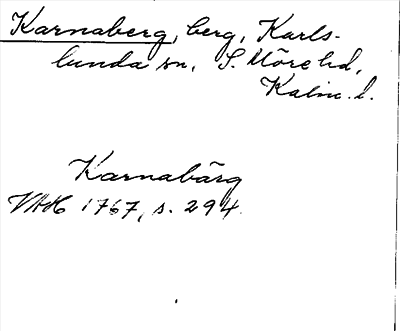 Karnaberg, berg, Karls-
lunda sn, S. Möre hd,
Kalm. l.
Karnabärg
VHH 1767, s. 294